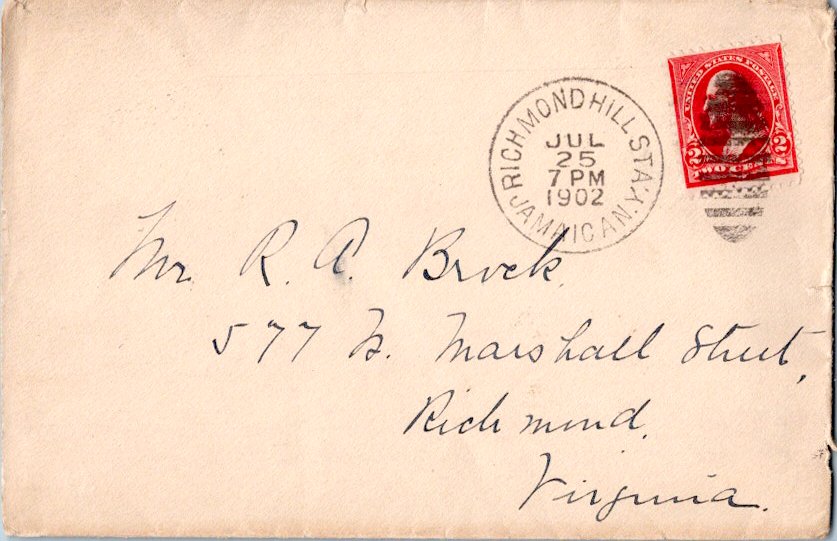 UNITED STATES POSTAGE
2 2
TWO CENTS
RICHMOND HILL STA.
JUL
25
7 PM
1902
JAMAICA N.Y.
Mr. R. A. Brock.
577 W. Marshall Street,
Richmond,
Virginia.